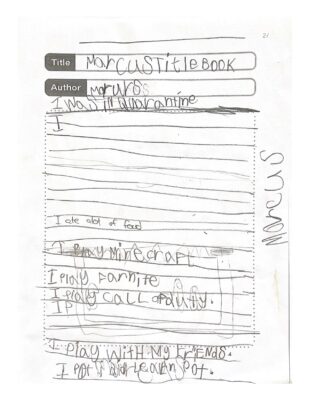 21
Title MarcusTitleBOOK
Author Marcus
I was in Quarantine
I
I ate alot of food
I play Minecraft
I Play Fornite
I Play CALL of Duty.
I P
I play with my frieNDS.
I
MArcus